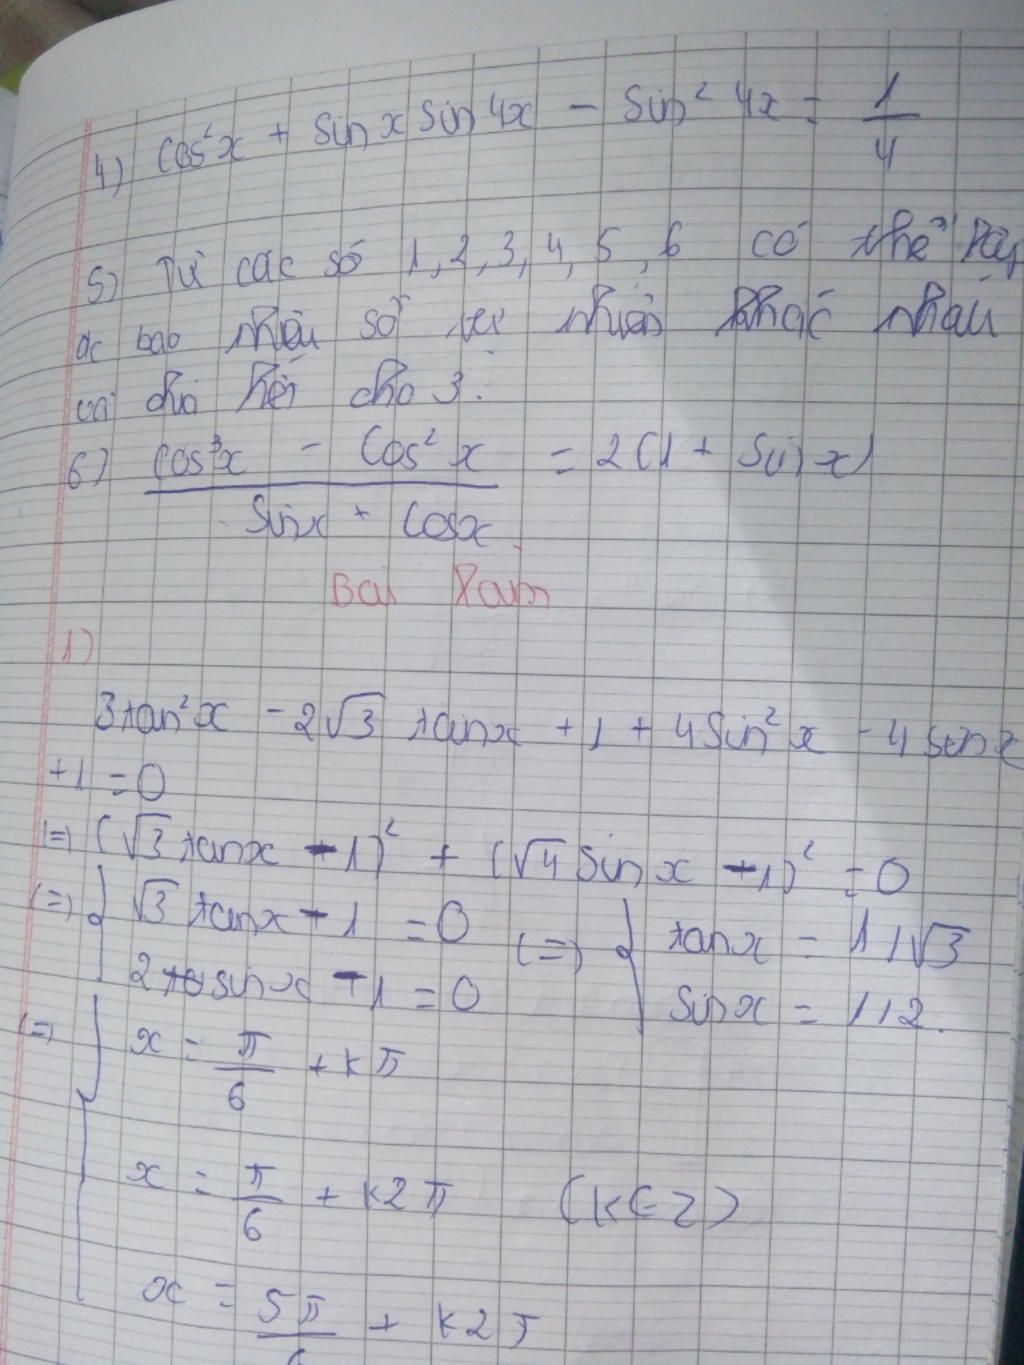 4) cos²x + sin x sin 4x - sin² 4x = 1/4
5) Từ các số 1, 2, 3, 4, 5, 6 có thể lập
đc bao nhiêu số tự nhiên khác nhau
và chia hết cho 3.
6) (cos³x - cos²x)/(sinx + cosx) = 2(1 + sinx)
Bài làm
1)
3tan²x - 2√3 tanx + 1 + 4sin²x - 4 sinx
+1 = 0
(=) (√3 tanx - 1)² + (√4 sin x - 1)² = 0
(=) { √3 tanx - 1 = 0 (=) { tanx = 1/√3
2 sinx - 1 = 0 sinx = 1/2.
(=) { x = π/6 + kπ
x = π/6 + k2π (k∈Z)
x = 5π/6 + k2π